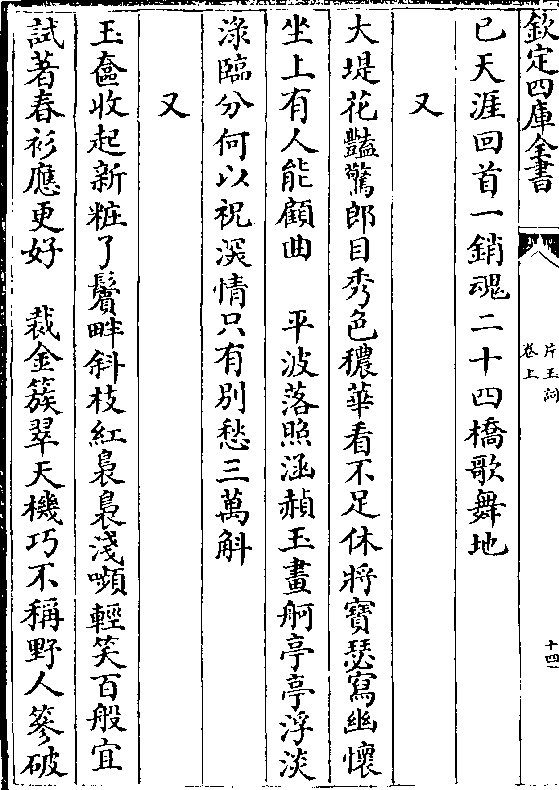 欽定四庫全書
片玉詞
卷上
十四
已天涯回首一銷魂二十四橋歌舞地
又
大堤花豔驚郎目秀色穠華看不足休將寶瑟寫幽懷
坐上有人能顧曲　平波落照涵赬玉畫舸亭亭浮淡
渌臨分何以祝深情只有別愁三萬斛
又
玉奩收起新粧了鬢畔斜枝紅裊裊淺嚬輕笑百般宜
試著春衫應更好　裁金簇翠天機巧不稱野人簪破